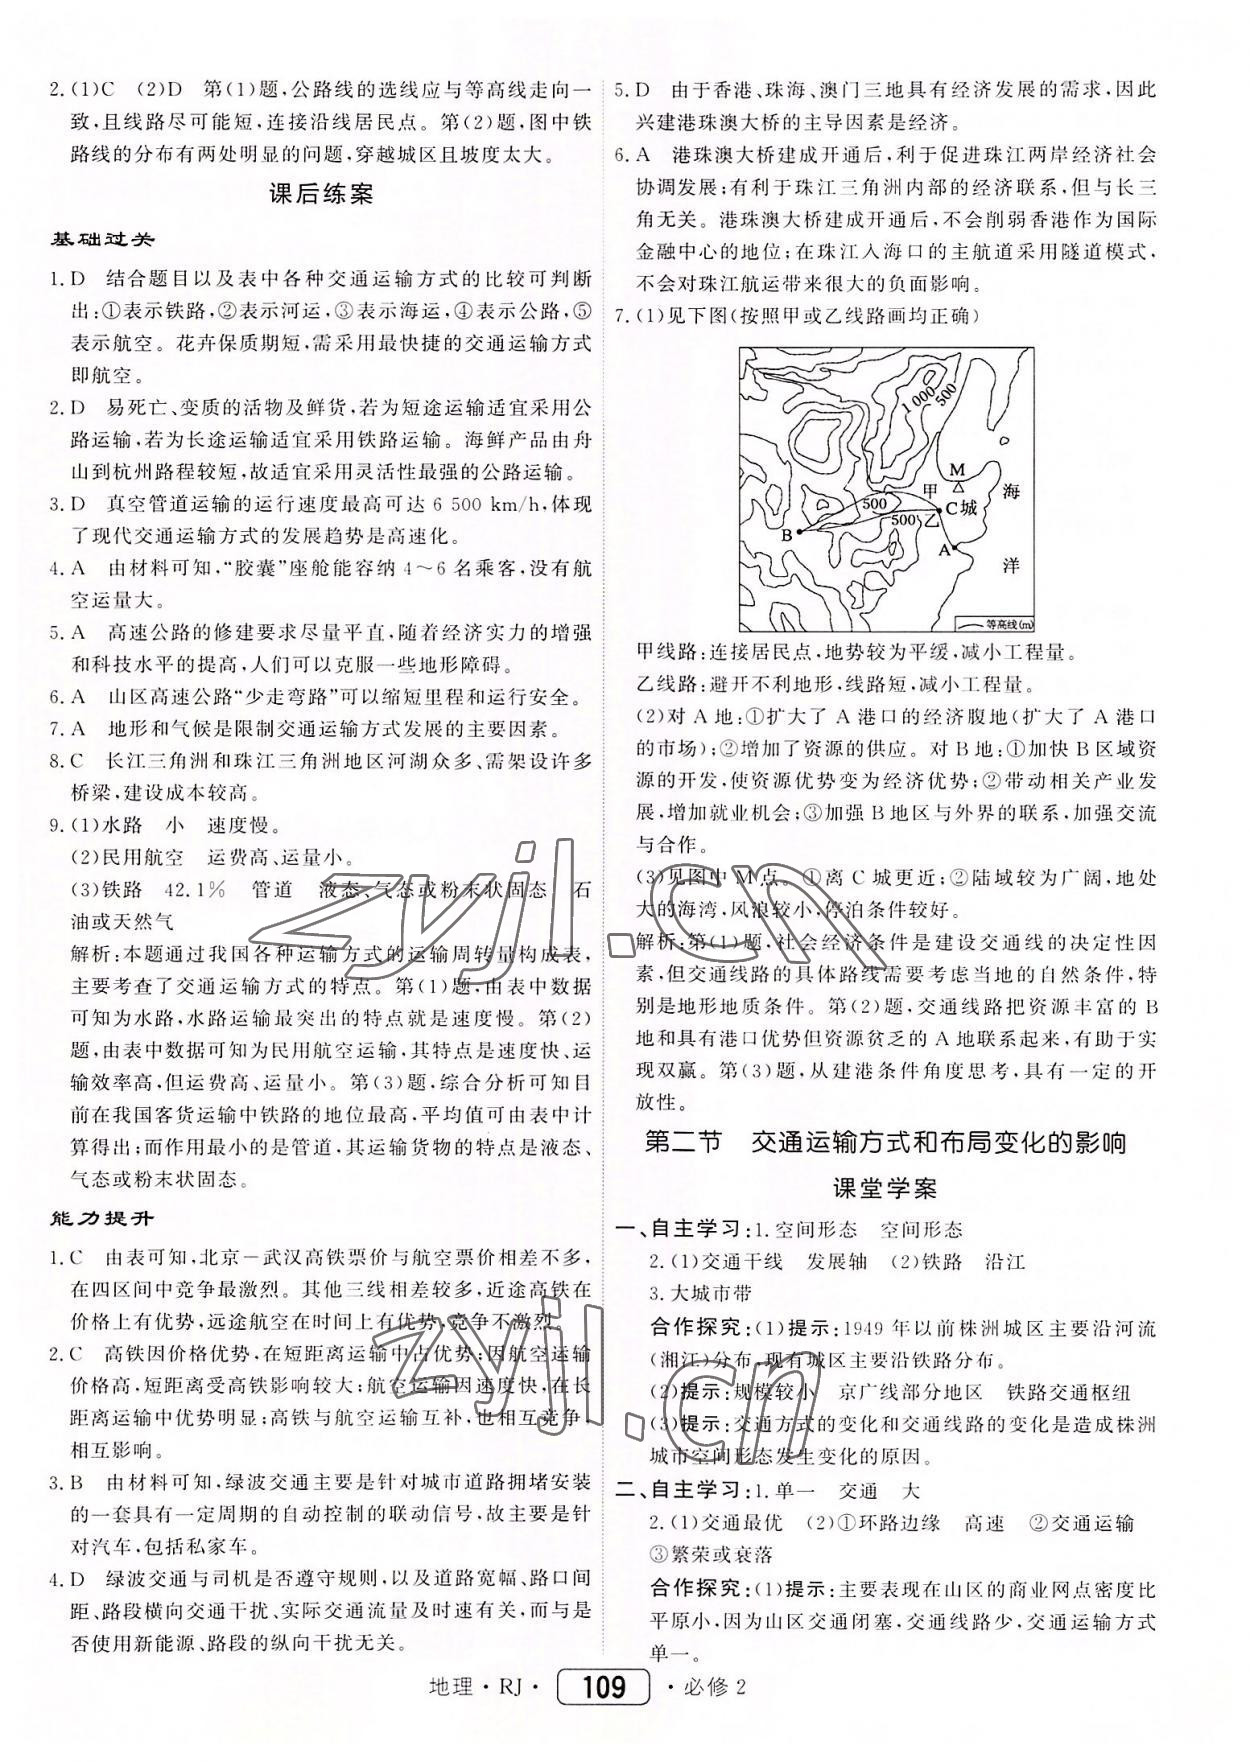 2.(1)C　(2)D　第(1)题,公路线的选线应与等高线走向一
致,且线路尽可能短,连接沿线居民点。第(2)题,图中铁
路线的分布有两处明显的问题,穿越城区且坡度太大。
课后练案
基础过关
1.D　结合题目以及表中各种交通运输方式的比较可判断
出:①表示铁路,②表示河运,③表示海运,④表示公路,⑤
表示航空。花卉保质期短,需采用最快捷的交通运输方式
即航空。
2.D　易死亡、变质的活物及鲜货,若为短途运输适宜采用公
路运输,若为长途运输适宜采用铁路运输。海鲜产品由舟
山到杭州路程较短,故适宜采用灵活性最强的公路运输。
3.D　真空管道运输的运行速度最高可达 6 500 km/h,体现
了现代交通运输方式的发展趋势是高速化。
4.A　由材料可知,“胶囊”座舱能容纳 4～6 名乘客,没有航
空运量大。
5.A　高速公路的修建要求尽量平直,随着经济实力的增强
和科技水平的提高,人们可以克服一些地形障碍。
6.A　山区高速公路“少走弯路”可以缩短里程和运行安全。
7.A　地形和气候是限制交通运输方式发展的主要因素。
8.C　长江三角洲和珠江三角洲地区河湖众多、需架设许多
桥梁,建设成本较高。
9.(1)水路　小　速度慢。
(2)民用航空　运费高、运量小。
(3)铁路　42.1%　管道　液态、气态或粉末状固态　石
油或天然气
解析:本题通过我国各种运输方式的运输周转量构成表,
主要考查了交通运输方式的特点。第(1)题,由表中数据
可知为水路,水路运输最突出的特点就是速度慢。第(2)
题,由表中数据可知为民用航空运输,其特点是速度快、运
输效率高,但运费高、运量小。第(3)题,综合分析可知目
前在我国客货运输中铁路的地位最高,平均值可由表中计
算得出;而作用最小的是管道,其运输货物的特点是液态、
气态或粉末状固态。
能力提升
1.C　由表可知,北京－武汉高铁票价与航空票价相差不多,
在四区间中竞争最激烈。其他三线相差较多,近途高铁在
价格上有优势,远途航空在时间上有优势,竞争不激烈。
2.C　高铁因价格优势,在短距离运输中占优势;因航空运输
价格高,短距离受高铁影响较大;航空运输因速度快,在长
距离运输中优势明显;高铁与航空运输互补,也相互竞争,
相互影响。
3.B　由材料可知,绿波交通主要是针对城市道路拥堵安装
的一套具有一定周期的自动控制的联动信号,故主要是针
对汽车,包括私家车。
4.D　绿波交通与司机是否遵守规则,以及道路宽幅、路口间
距、路段横向交通干扰、实际交通流量及时速有关,而与是
否使用新能源、路段的纵向干扰无关。
5.D　由于香港、珠海、澳门三地具有经济发展的需求,因此
兴建港珠澳大桥的主导因素是经济。
6.A　港珠澳大桥建成开通后,利于促进珠江两岸经济社会
协调发展;有利于珠江三角洲内部的经济联系,但与长三
角无关。港珠澳大桥建成开通后,不会削弱香港作为国际
金融中心的地位;在珠江入海口的主航道采用隧道模式,
不会对珠江航运带来很大的负面影响。
7.(1)见下图(按照甲或乙线路画均正确)
1 000
500
M
海
甲
500
C城
500
乙
B
A
洋
等高线(m)
甲线路:连接居民点,地势较为平缓,减小工程量。
乙线路:避开不利地形,线路短,减小工程量。
(2)对 A 地:①扩大了 A 港口的经济腹地(扩大了 A 港口
的市场);②增加了资源的供应。对 B 地:①加快 B 区域资
源的开发,使资源优势变为经济优势;②带动相关产业发
展,增加就业机会;③加强 B 地区与外界的联系,加强交流
与合作。
(3)见图中 M 点。①离 C 城更近;②陆域较为广阔,地处
大的海湾,风浪较小,停泊条件较好。
解析:第(1)题,社会经济条件是建设交通线的决定性因
素,但交通线路的具体路线需要考虑当地的自然条件,特
别是地形地质条件。第(2)题,交通线路把资源丰富的 B
地和具有港口优势但资源贫乏的 A 地联系起来,有助于
实现双赢。第(3)题,从建港条件角度思考,具有一定的开
放性。
第二节　交通运输方式和布局变化的影响
课堂学案
一、自主学习:1.空间形态　空间形态
2.(1)交通干线　发展轴　(2)铁路　沿江
3.大城市带
合作探究:(1)提示:1949 年以前株洲城区主要沿河流
(湘江)分布,现有城区主要沿铁路分布。
(2)提示:规模较小　京广线部分地区　铁路交通枢纽
(3)提示:交通方式的变化和交通线路的变化是造成株洲
城市空间形态发生变化的原因。
二、自主学习:1.单一　交通　大
2.(1)交通最优　(2)①环路边缘　高速　②交通运输
③繁荣或衰落
合作探究:(1)提示:主要表现在山区的商业网点密度比
平原小,因为山区交通闭塞,交通线路少,交通运输方式
单一。
zyjl.cn
zyjl.cn
地理·RJ· 109 ·必修2